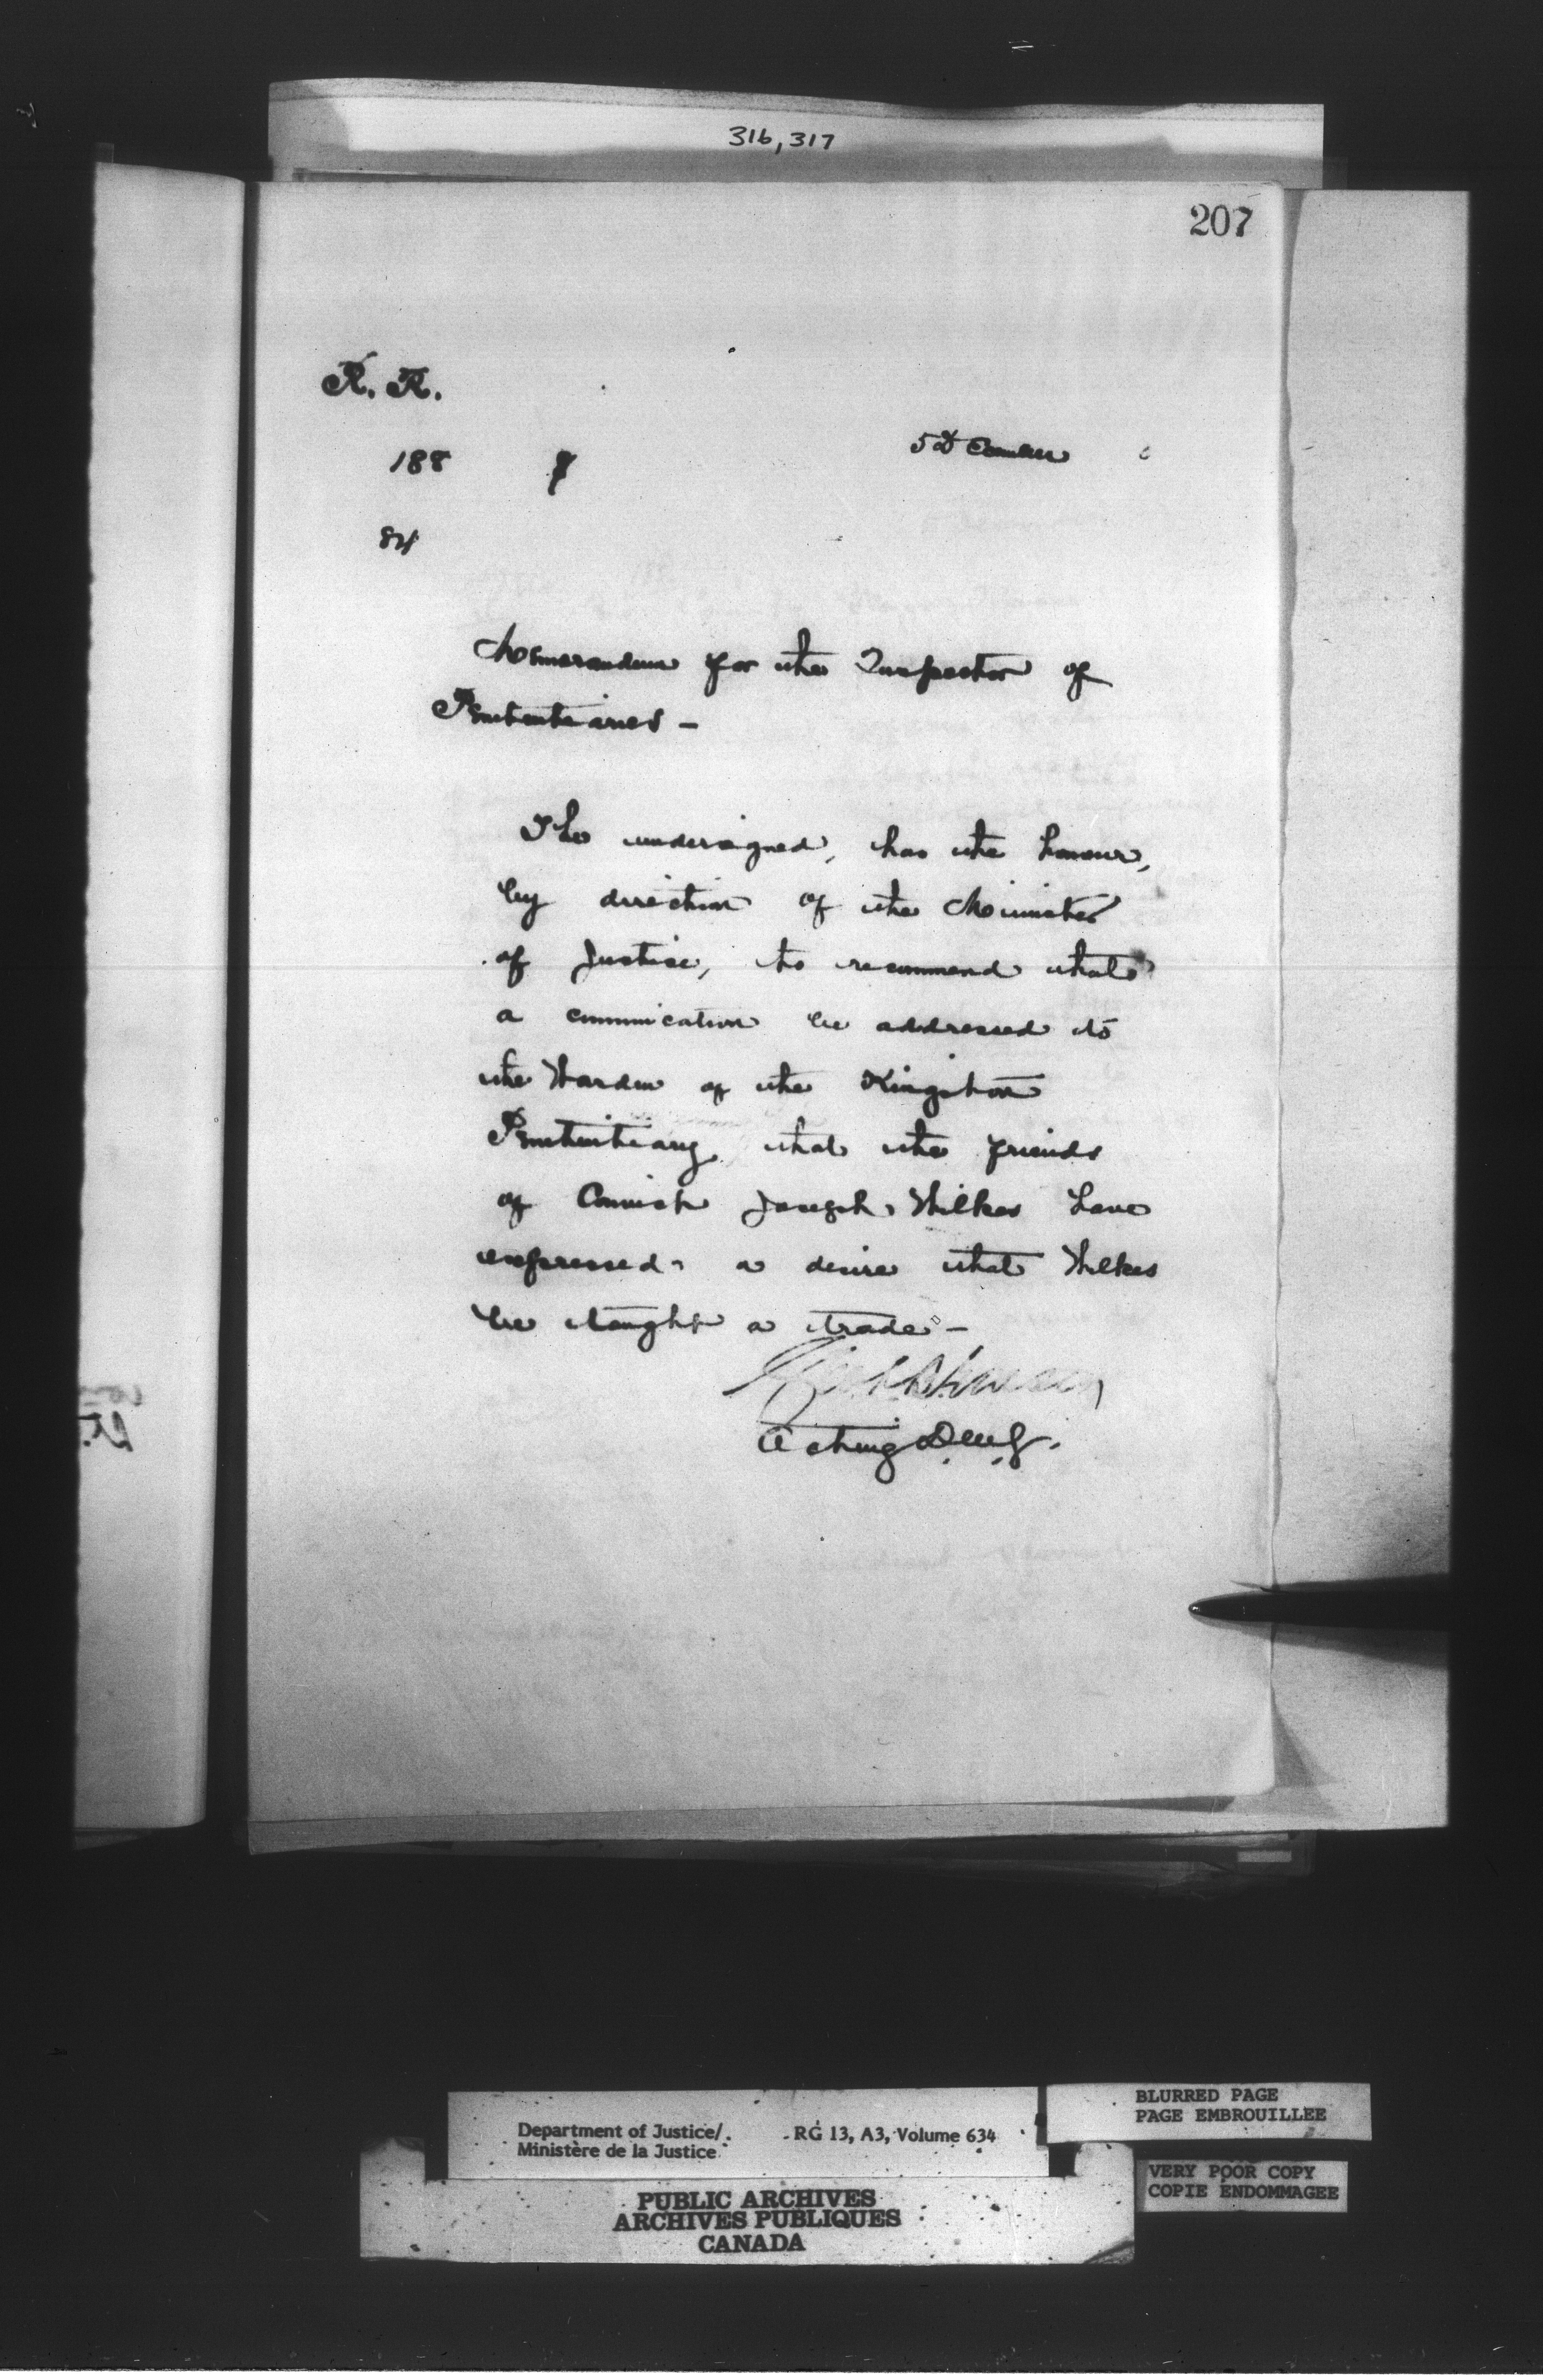 316, 317
207
R. R.
188
5 December 6
84
Memorandum for the Inspector of
Penitentiaries –
The undersigned, has the honour,
by direction of the Minister
of Justice, to recommend that
a communication be addressed to
the Warden of the Kingston
Penitentiary, that the friends
of Convict Joseph Wilkes have
expressed a desire that Wilkes
be taught a trade –
Acting D.M.J.
Department of Justice/
Ministère de la Justice
RG 13, A3, Volume 634
BLURRED PAGE
PAGE EMBROUILLEE
VERY POOR COPY
COPIE ENDOMMAGEE
PUBLIC ARCHIVES
ARCHIVES PUBLIQUES
CANADA